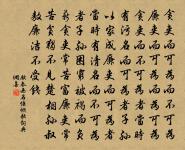 貪吏而不可為而可為
廉吏而可為而不可為
貪吏而不可為者當時
有污名而可為者子孫
以家成廉吏而可為者
當時有清名而不可為
者子孫困窮被褐而負
薪貪吏常苦富廉吏常
苦貧獨不見楚相孫叔
敖廉潔不受錢